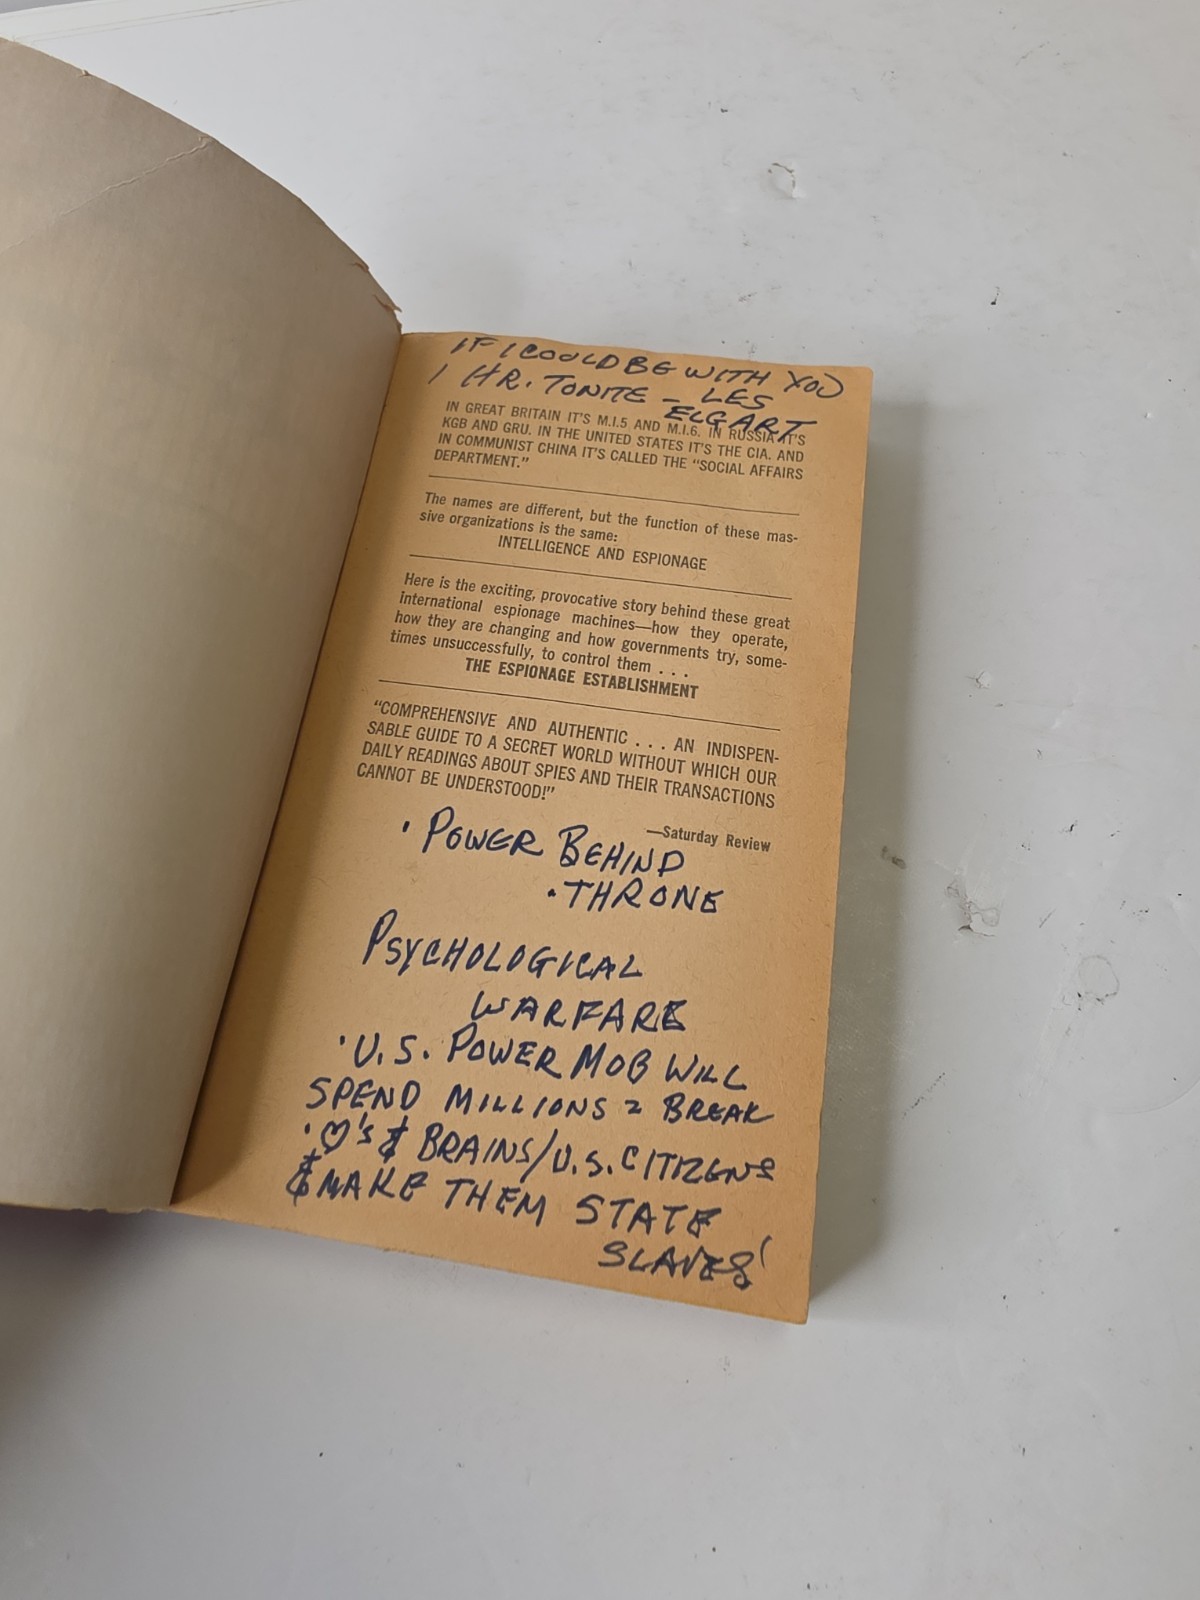 IF I COULD BE WITH YOU
1 HR. TONITE – LES
ELGART
IN GREAT BRITAIN IT'S M.I.5 AND M.I.6. IN RUSSIA IT'S
KGB AND GRU. IN THE UNITED STATES IT'S THE CIA. AND
IN COMMUNIST CHINA IT'S CALLED THE "SOCIAL AFFAIRS
DEPARTMENT."
The names are different, but the function of these mas-
sive organizations is the same:
INTELLIGENCE AND ESPIONAGE
Here is the exciting, provocative story behind these great
international espionage machines—how they operate,
how they are changing and how governments try, some-
times unsuccessfully, to control them . . .
THE ESPIONAGE ESTABLISHMENT
"COMPREHENSIVE AND AUTHENTIC . . . AN INDISPEN-
SABLE GUIDE TO A SECRET WORLD WITHOUT WHICH OUR
DAILY READINGS ABOUT SPIES AND THEIR TRANSACTIONS
CANNOT BE UNDERSTOOD!"
—Saturday Review
· POWER BEHIND
· THRONE
PSYCHOLOGICAL
WARFARE
· U.S. POWER MOB WILL
SPEND MILLIONS 2 BREAK
· ♡'s & BRAINS/U.S. CITIZENS
& MAKE THEM STATE
SLAVES'